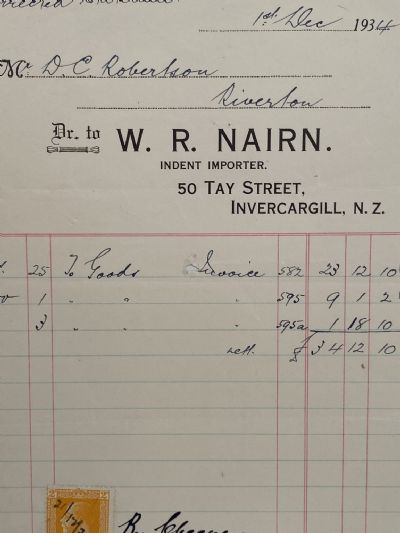 1st Dec 1934
Mr. D. C. Robertson
Riverton
Dr. to W. R. NAIRN.
INDENT IMPORTER.
50 TAY STREET,
INVERCARGILL, N. Z.
25 To Goods Invoice 582 23 12 10
1 " " " 595 9 1 2
3 " " " 595a 1 18 10
nett. £ 34 12 10